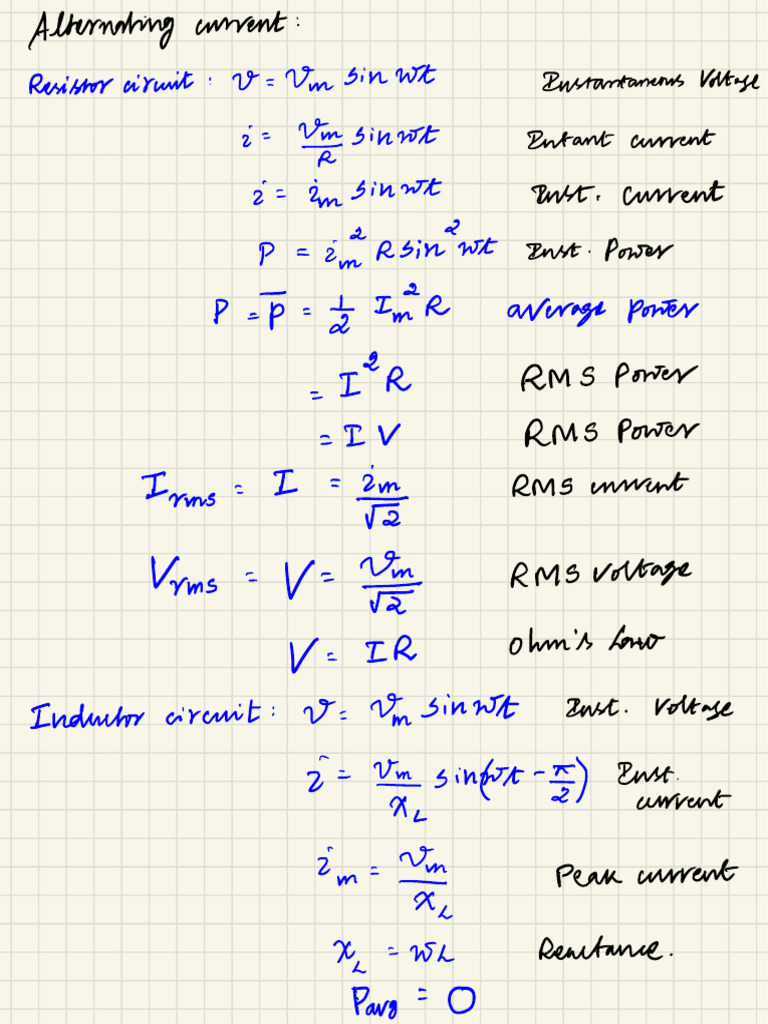 Alternating current:
Resistor circuit : v = vm sin wt Instantaneous Voltage
i = vm/R sin wt Intant current
i = im sin wt Inst. Current
P = im² R sin² wt Inst. Power
P = p̅ = 1/2 Im² R average power
= I² R RMS Power
= I V RMS Power
Irms = I = im/√2 RMS current
Vrms = V = vm/√2 RMS Voltage
V = IR Ohm's law
Inductor circuit : v = vm sin wt Inst. Voltage
i = vm/xL sin(wt - π/2) Inst. current
im = vm/xL Peak current
xL = wL Reactance.
Pavg = 0